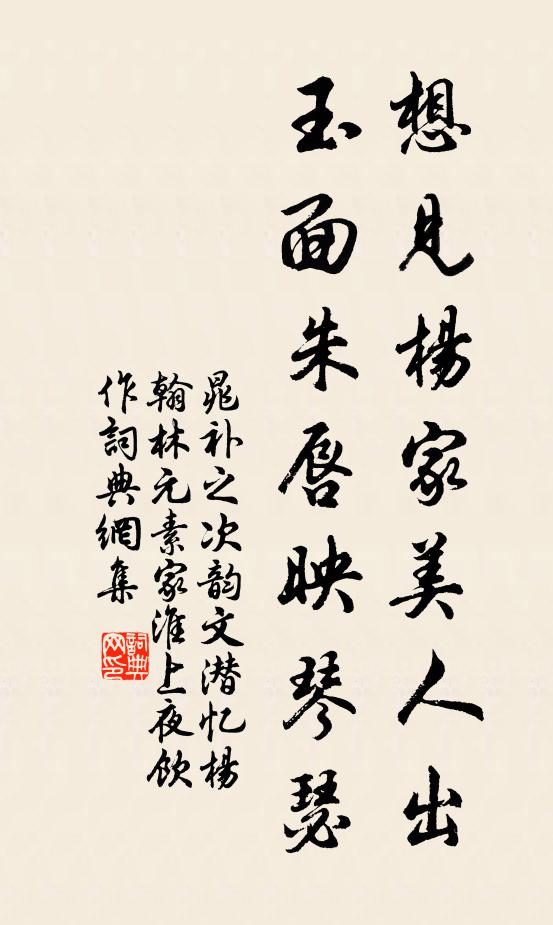 想見楊家美人出
玉面朱唇映琴瑟
晁补之次韵文潜忆楊
翰林元素家淮上夜飲
作詞典網集
詞典
网印